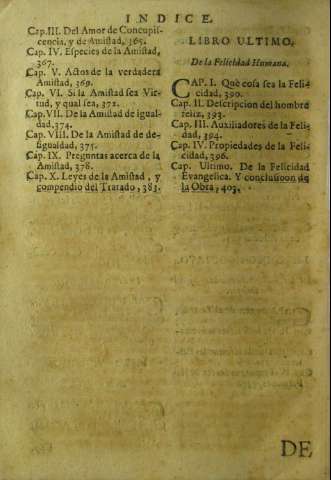 INDICE.
Cap.III. Del Amor de Concupis-
cencia, y de Amistad, 365.
Cap. IV. Especies de la Amistad,
367.
Cap. V. Actos de la verdadera
Amistad, 369.
Cap. VI. Si la Amistad sea Vir-
tud, y qual sea, 372.
Cap.VII. De la Amistad de igual-
dad, 374.
Cap. VIII. De la Amistad de de-
sigualdad, 375.
Cap. IX. Preguntas acerca de la
Amistad, 378.
Cap. X. Leyes de la Amistad, y
compendio del Tratado, 383.
LIBRO ULTIMO.
De la Felicidad Humana.
CAP. I. Què cosa sea la Feli-
cidad, 390.
Cap. II. Descripcion del hombre
feliz, 393.
Cap. III. Auxiliadores de la Feli-
dad, 394.
Cap. IV. Propiedades de la Feli-
cidad, 396.
Cap. Ultimo. De la Felicidad
Evangelica. Y conclusioon de
la Obra, 403.
DE